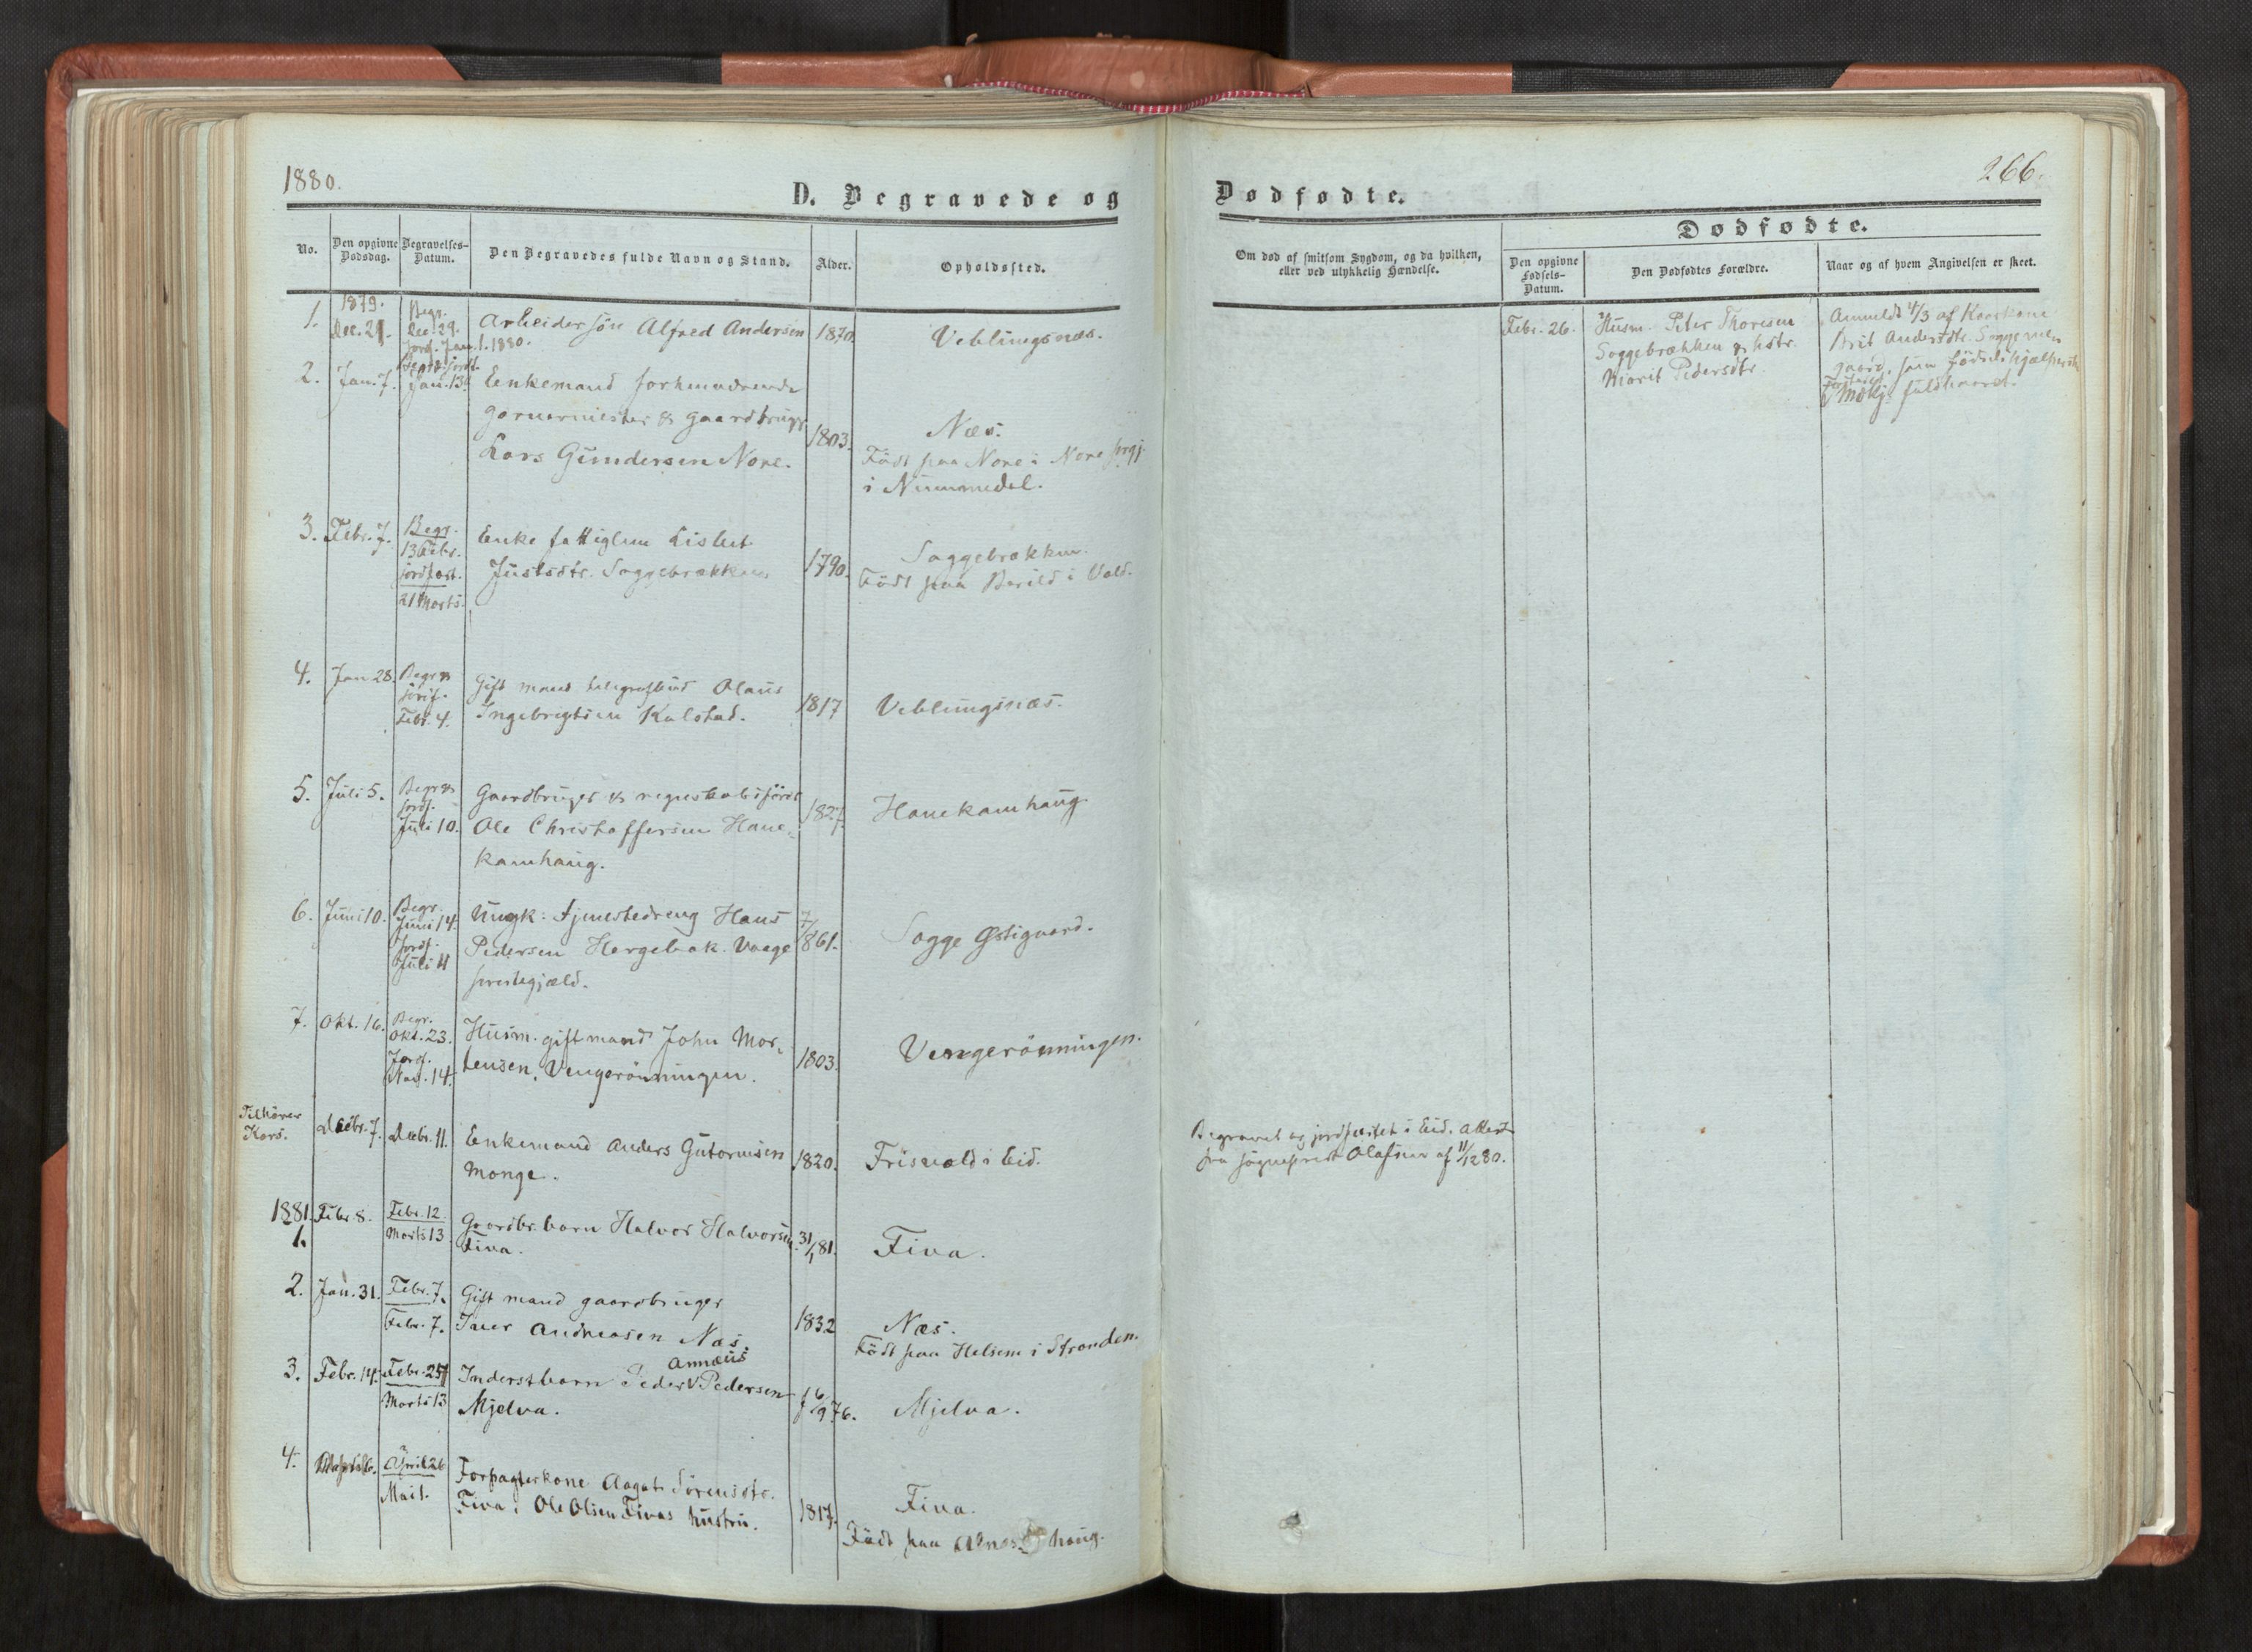 1880.
D. Begravede og
No.
Den opgivne Dødsdag.
Begravelses-Datum.
Den Begravedes fulde Navn og Stand.
Alder.
Opholdssted.
1.
1879.
Dec. 29.
Begr.
Dec. 29.
Jordf. Jan. 1. 1880.
Arbeidersön Alfred Andersen
1870.
Veblungsnæs.
2.
Jan. 7.
Jan. 13.
Enkemand forhenværende
garvermester & gaardbruger
Lars Gundersen Nore.
1803.
Næs.
Födt paa Nore i Nore prgj.
i Nummedal.
3.
Febr. 7.
Begr.
13 Febr.
jordfæst.
21 Marts.
Enke fattiglem Lisbet
Justsdtr. Soggebrækken
1790.
Soggebrækken.
Födt paa Berild i Vold.
4.
Jan 28.
Begr &
jordf.
Febr. 4.
Gift mand telegrafbud Olaus
Ingebrigtsen Kalstad.
1817
Veblungsnæs.
5.
Juli 5.
Begr &
jordf.
Juli 10.
Gaardbruger & regnskabsförer
Ole Christoffersen Hane-
kamhaug.
1827.
Hanekamhaug.
6.
Juni 10.
Begr.
Juni 14.
Jordf.
Juli 11
Ungk: tjenestedreng Hans
Pedersen Horgebak. Vaage
prestegjæld.
861.
Sogge Østigaard.
7.
Okt. 16.
Begr.
Okt. 23.
Jordf.
Nov. 14.
Husm. gift mand John Mor-
tensen, Vengerönningen.
1803.
Vengerönningen.
Tilhörer
Kors.
Decbr. 7.
Decbr. 11.
Enkemand Anders Gutormsen
Monge.
1820.
Frisvold i Eid.
1881.
1.
Febr. 8.
Febr. 12
Marts 13
Gaardbr. barn Halvor Halvorsen
Fiva.
31/1 81.
Fiva.
2.
Jan. 31.
Febr. 7.
Febr. 7.
Gift mand gaardbruger
Iver Andreasen Næs.
1832
Næs.
Födt paa Helsem i Stranden.
3.
Febr. 14.
Febr. 25
Marts 13
Annæus
Inderstbarn Peder V Pedersen
Mjelva.
f 6/9 76.
Mjelva.
4.
April 26
Mai 1.
Forpagterkone Aagat Sörensdtr.
Fiva. Ole Olsen Fivas hustru.
1817.
Fiva.
Födt paa haug.
266.
Dødfødte.
Om død af smitsom Sygdom, og da hvilken,
eller ved ulykkelig Hændelse.
Dødfødte.
Den opgivne Fødsels-Datum.
Den Dødfødtes Forældre.
Naar og af hvem Angivelsen er skeet.
Febr. 26.
Husm. Peter Thoresen
Soggebrækken & hstr.
Marit Pedersdtr.
Anmeldt 4/3 af Kaarkone
Brit Andersdtr. Sogge
som födselshjælperske
Mdkj. fuldbaaret.
Begravet og jordfæstet i Eid. Attest
fra sogneprest Olafsen af 11/12 80.